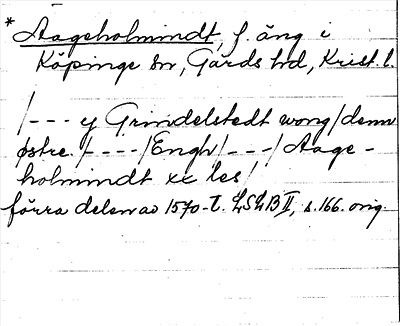 * Aageholmindt, f. äng i
Köpinge sn, Gärds hd, Krist. l.
/--- y Grindelstedt wong/denn
østre /----/Engh/---/Aage-
holmindt xx les/
förra delen av 1570-t. LSLB II, s. 166. orig.